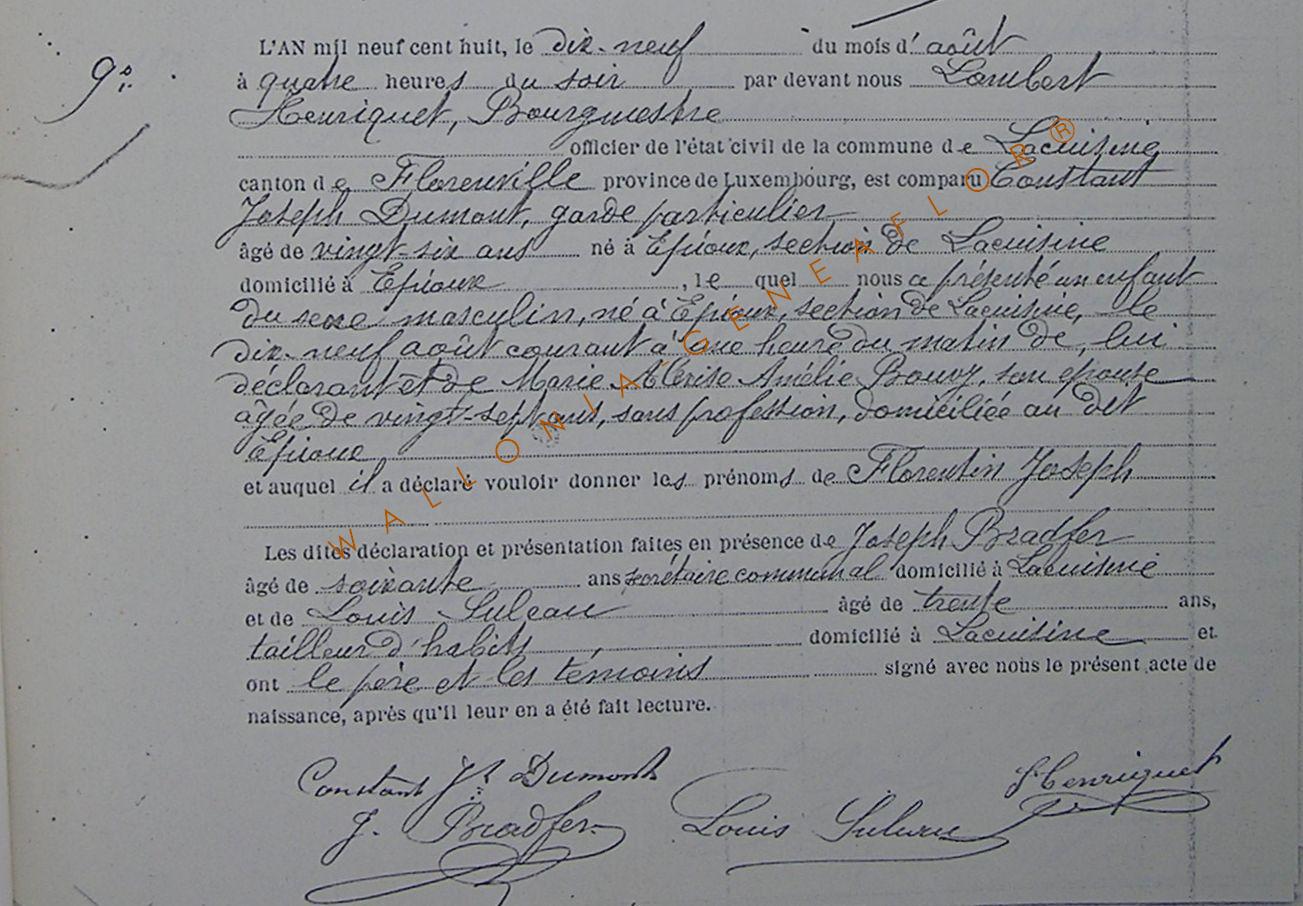 9°.
L'AN mil neuf cent huit, le dix-neuf du mois d'août
à quatre heures du soir par devant nous Lambert
Henriquet, Bourgmestre
officier de l'état civil de la commune de Lacuisine
canton de Florenville province de Luxembourg, est comparu Constant
Joseph Dumont, garde particulier
âgé de vingt-six ans né à Epioux, section de Lacuisine
domicilié à Epioux, le quel nous a présenté un enfant
du sexe masculin, né à Epioux, section de Lacuisine, le
dix-neuf août courant à une heure du matin de, lui
déclarant et de Marie Alérise Amélie Bouvy, son epouse
âgée de vingt-sept ans, sans profession, domiciliée au dit
Epioux
et auquel il a déclaré vouloir donner les prénoms de Florentin Joseph
Les dites déclaration et présentation faites en présence de Joseph Bradfer
âgé de soixante ans secrétaire communal domicilié à Lacuisine
et de Louis Suleau âgé de trente ans,
tailleur d'habits, domicilié à Lacuisine et
ont le père et les témoins signé avec nous le présent acte de
naissance, après qu'il leur en a été fait lecture.
Constant Jh Dumont
J. Bradfer
Louis Suleau
Henriquet
WALLONIA-GENEAFLOR®